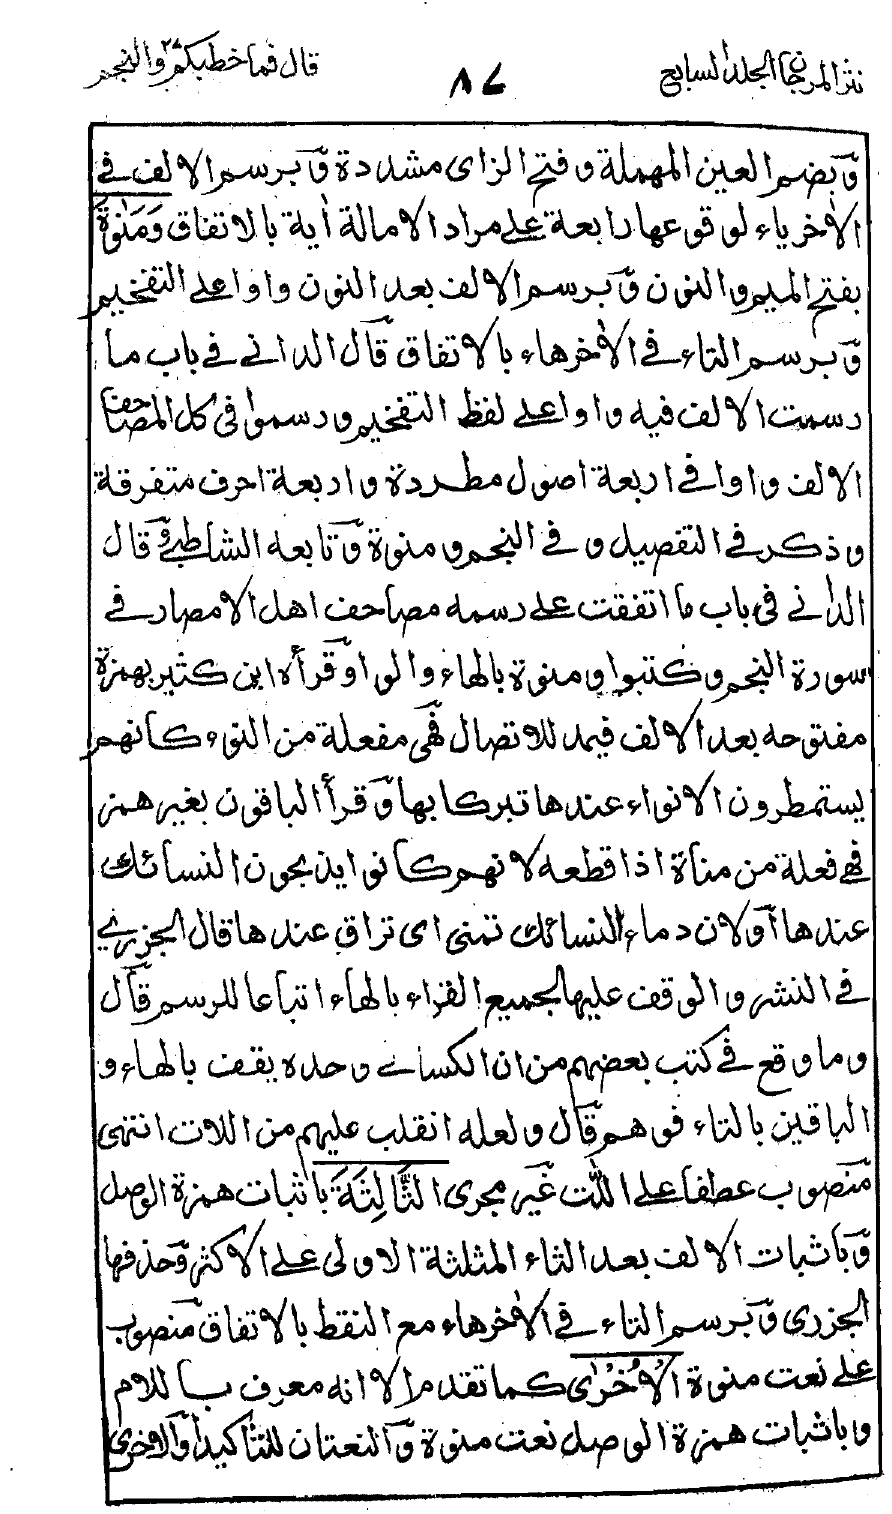 نثر المرجان الجلد السابع
٨٧
قال فما خطبكم ٢٧ والنجم
وبضم العين المهملة وفتح الزاى مشددة وبرسم الالف فى
الآخرياء لوقوعها رابعة على مراد الامالة اٰية بالاتفاق وَمَنٰوةَ
بفتح الميم والنون وبرسم الالف بعد النون واوا على التفخيم
وبرسم التاء فى الآخرهاء بالاتفاق قال الدانى فى باب ما
رسمت الالف فيه واوا على لفظ التفخيم ورسموا فى كل المصاحف
الالف واوا فى اربعة اصول مطردة واربعة احرف متفرقة
وذكر فى التفصيل وفى النجم ومنوة وتابعه الشاطبى وقال
الدانى فى باب ما اتفقت على رسمه مصاحف اهل الامصار فى
سورة النجم وكتبوا ومنوة بالهاء والواو وقرأه ابن كثير بهمزة
مفتوحه بعد الالف فيمد للاتصال فهى مفعلة من النوء كانهم
يستمطرون الانواء عندها تبركا بها وقرأ الباقون بغير همز
فهى فعلة من مناة اذا قطعه لانهم كانوا يذبحون النسائك
عندها اولان دماء النسائك تمنى اى تراق عندها قال الجزرى
فى النشر والوقف عليها لجميع القراء بالهاء اتباعا للرسم قال
وما وقع فى كتب بعضهم من ان الكسائى وحده يقف بالهاء و
الباقين بالتاء فوهم قال ولعله انقلب عليهم من اللات انتهى
منصوب عطفا على اللّت غير مجرى الثَّالِثَةَ باثبات همزة الوصل
وباثبات الالف بعد الثاء المثلثة الاولى على الاكثر وحذفها
الجزرى وبرسم التاء فى الآخرهاء مع النقط بالاتفاق منصوب
على نعت منوة الْاُخْرٰى كما تقدم الا انه معرف باللام
وباثبات همزة الوصل نعت منوة والنعتان للتاكيد او الاخرى